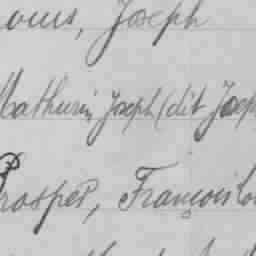 ouis, Joseph
Mathurin Joseph (dit Josep
Prosper, François Lou